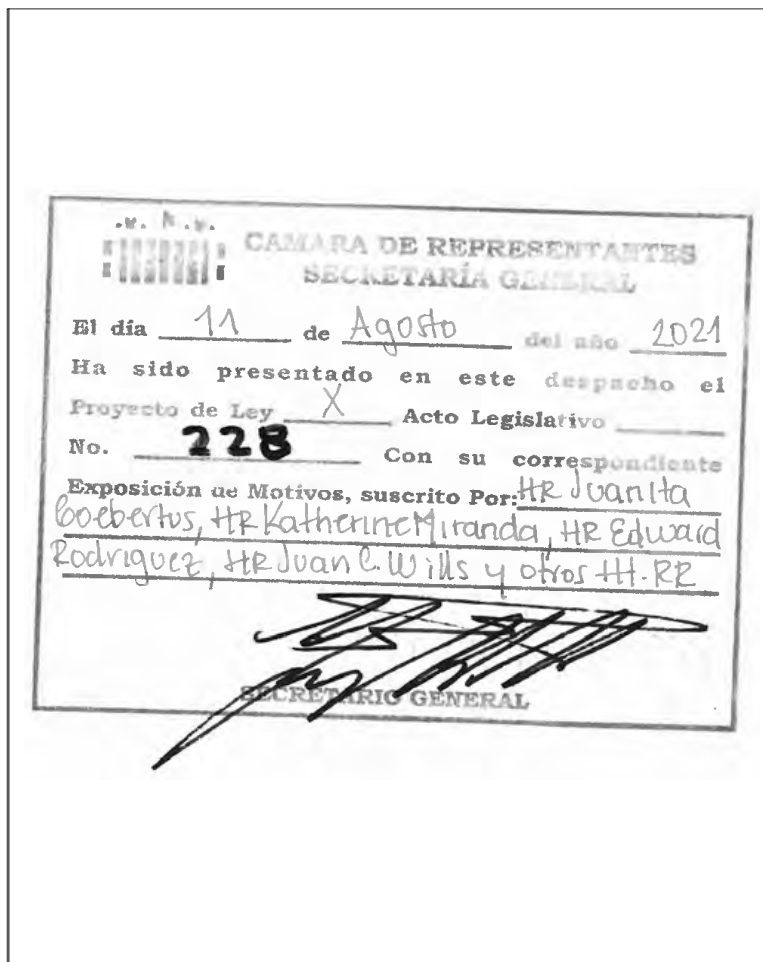 CAMARA DE REPRESENTANTES
SECRETARÍA GENERAL
El día 11 de Agosto del año 2021
Ha sido presentado en este despacho el
Proyecto de Ley X Acto Legislativo
No. 228 Con su correspondiente
Exposición de Motivos, suscrito Por: HR Juanita
Goebertus, HR Katherine Miranda, HR Edward
Rodriguez, HR Juan C. Wills y otros HH. RR
SECRETARIO GENERAL